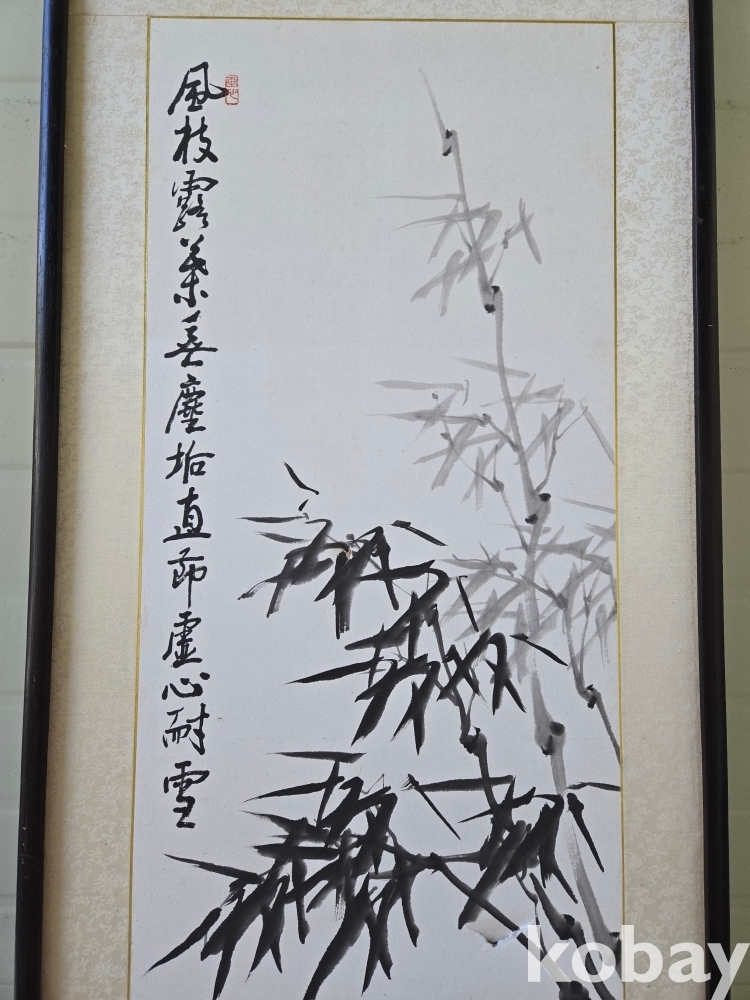 風枝露葉無塵垢直節虛心耐雪
kobay